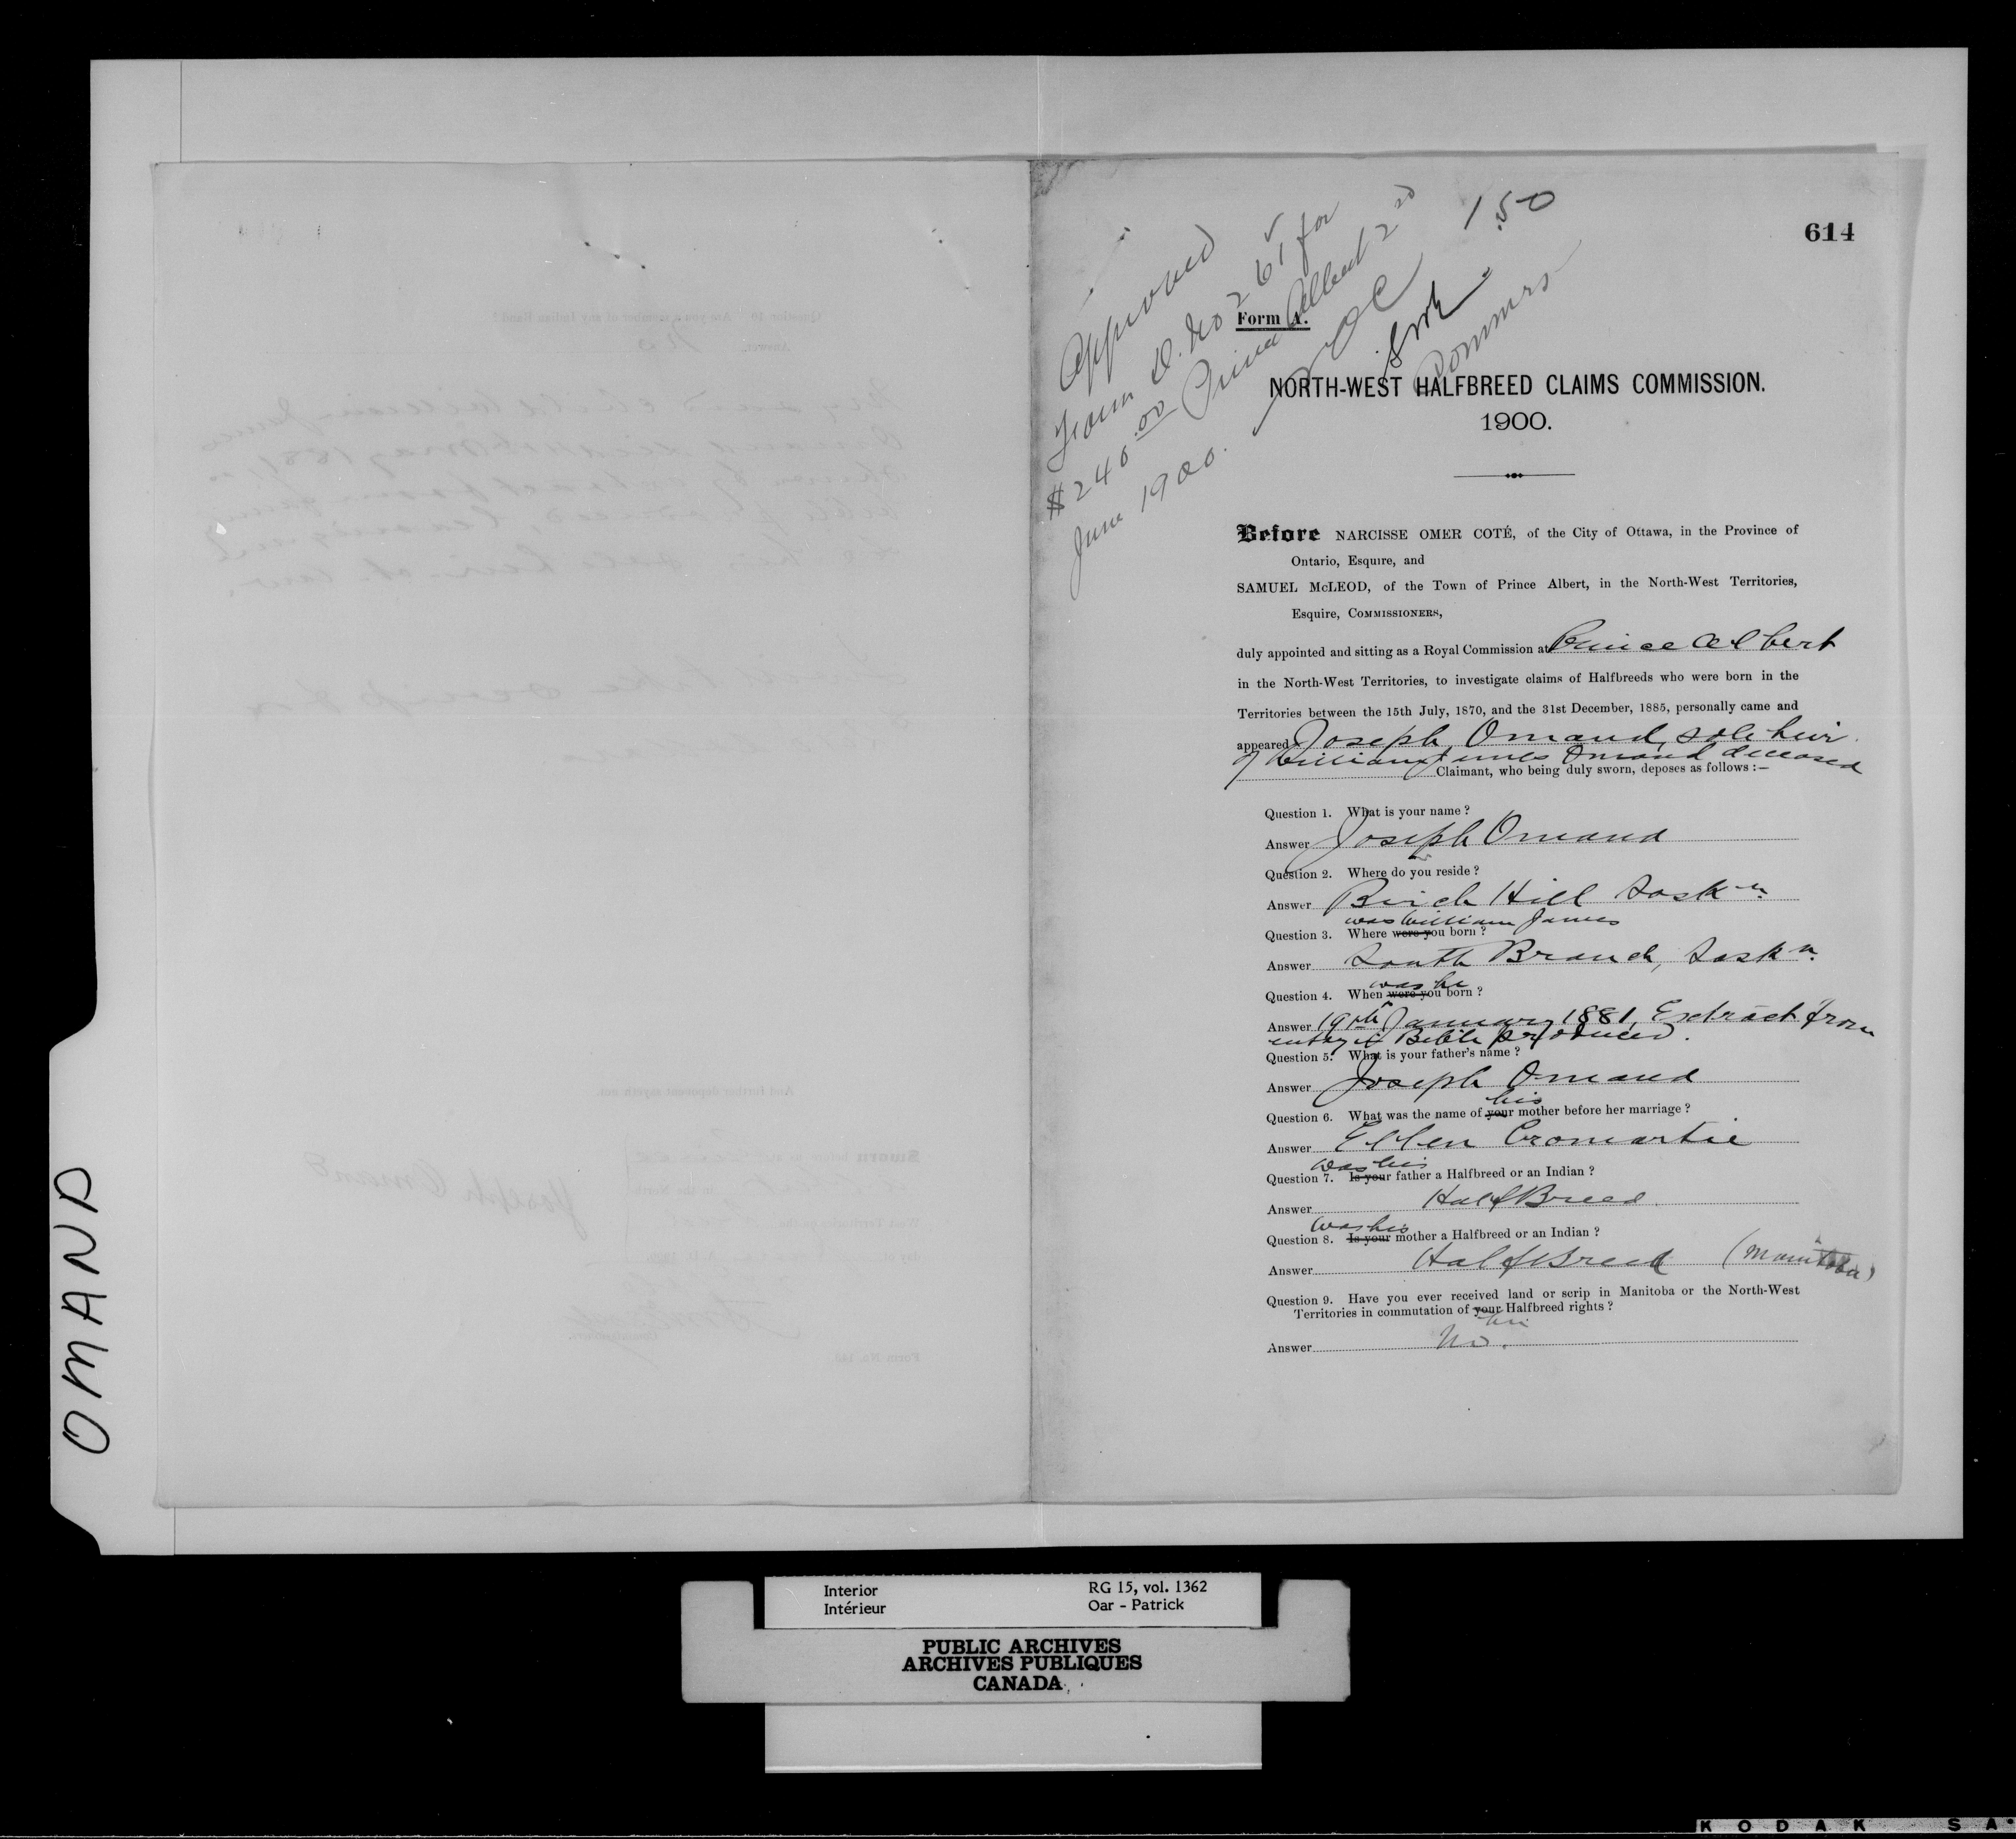 OMAND
614
150
Approved
Form D. No 261 for
$240.00 Prince Albert 2nd
June 1900.
NOC
Commrs
Form A.
NORTH-WEST HALFBREED CLAIMS COMMISSION.
1900.
Before NARCISSE OMER COTÉ, of the City of Ottawa, in the Province of
Ontario, Esquire, and
SAMUEL McLEOD, of the Town of Prince Albert, in the North-West Territories,
Esquire, COMMISSIONERS,
duly appointed and sitting as a Royal Commission at Prince Albert
in the North-West Territories, to investigate claims of Halfbreeds who were born in the
Territories between the 15th July, 1870, and the 31st December, 1885, personally came and
appeared Joseph Omand, sole heir
of William James Omand deceased
Claimant, who being duly sworn, deposes as follows :—
Question 1. What is your name ?
Answer Joseph Omand
Question 2. Where do you reside ?
Answer Birch Hill Sask n.
was William James
Question 3. Where were you born ?
Answer South Branch, Sask n.
was he
Question 4. When were you born ?
Answer 19th January 1881, Extract from
entry in Bible produced.
Question 5. What is your father's name ?
Answer Joseph Omand
his
Question 6. What was the name of your mother before her marriage ?
Answer Ellen Cromartie
was his
Question 7. Is your father a Halfbreed or an Indian ?
Answer HalfBreed.
was his
Question 8. Is your mother a Halfbreed or an Indian ?
Answer HalfBreed (Manitoba)
Question 9. Have you ever received land or scrip in Manitoba or the North-West
Territories in commutation of your Halfbreed rights ?
his
Answer No.
Interior
Intérieur
RG 15, vol. 1362
Oar - Patrick
PUBLIC ARCHIVES
ARCHIVES PUBLIQUES
CANADA
KODAK SA